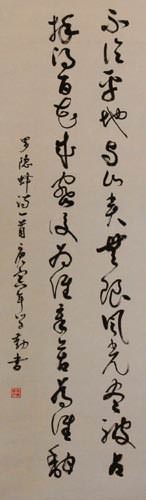 不论平地与山尖無限風光尽被占
採得百花成蜜後为谁辛苦为谁甜
罗隐蜂诗一首庚寅年学勤书